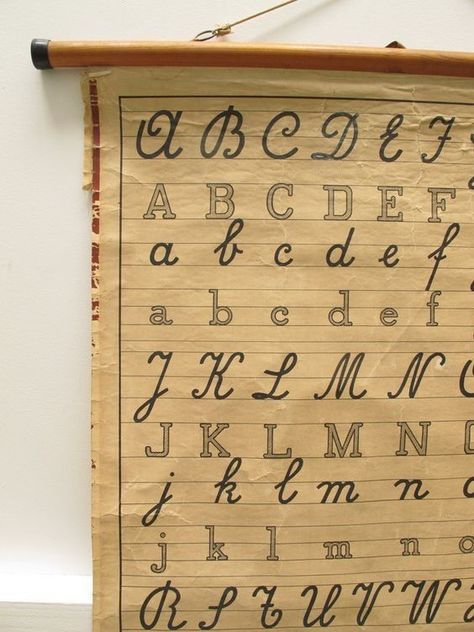 A B C D E F
A B C D E F
a b c d e f
a b c d e f
J K L M N
J K L M N
j k l m n
j k l m n o
R S T U V W